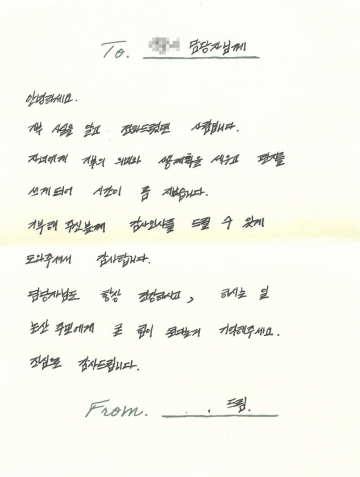 To. 담당자님께
안녕하세요.
기부 사실을 알고 전화드렸던 사람입니다.
자녀에게 기부의 의미와 사용계획을 세우고 편지를
쓰게되어 시간이 좀 지났습니다.
기부해 주신분께 감사인사를 드릴 수 있게
도와주셔서 감사합니다.
담당자님도 항상 건강하시고, 하시는 일
논산 주민에게 큰 힘이 된다는거 기억해주세요.
진심으로 감사드립니다.
From. . . 드림.